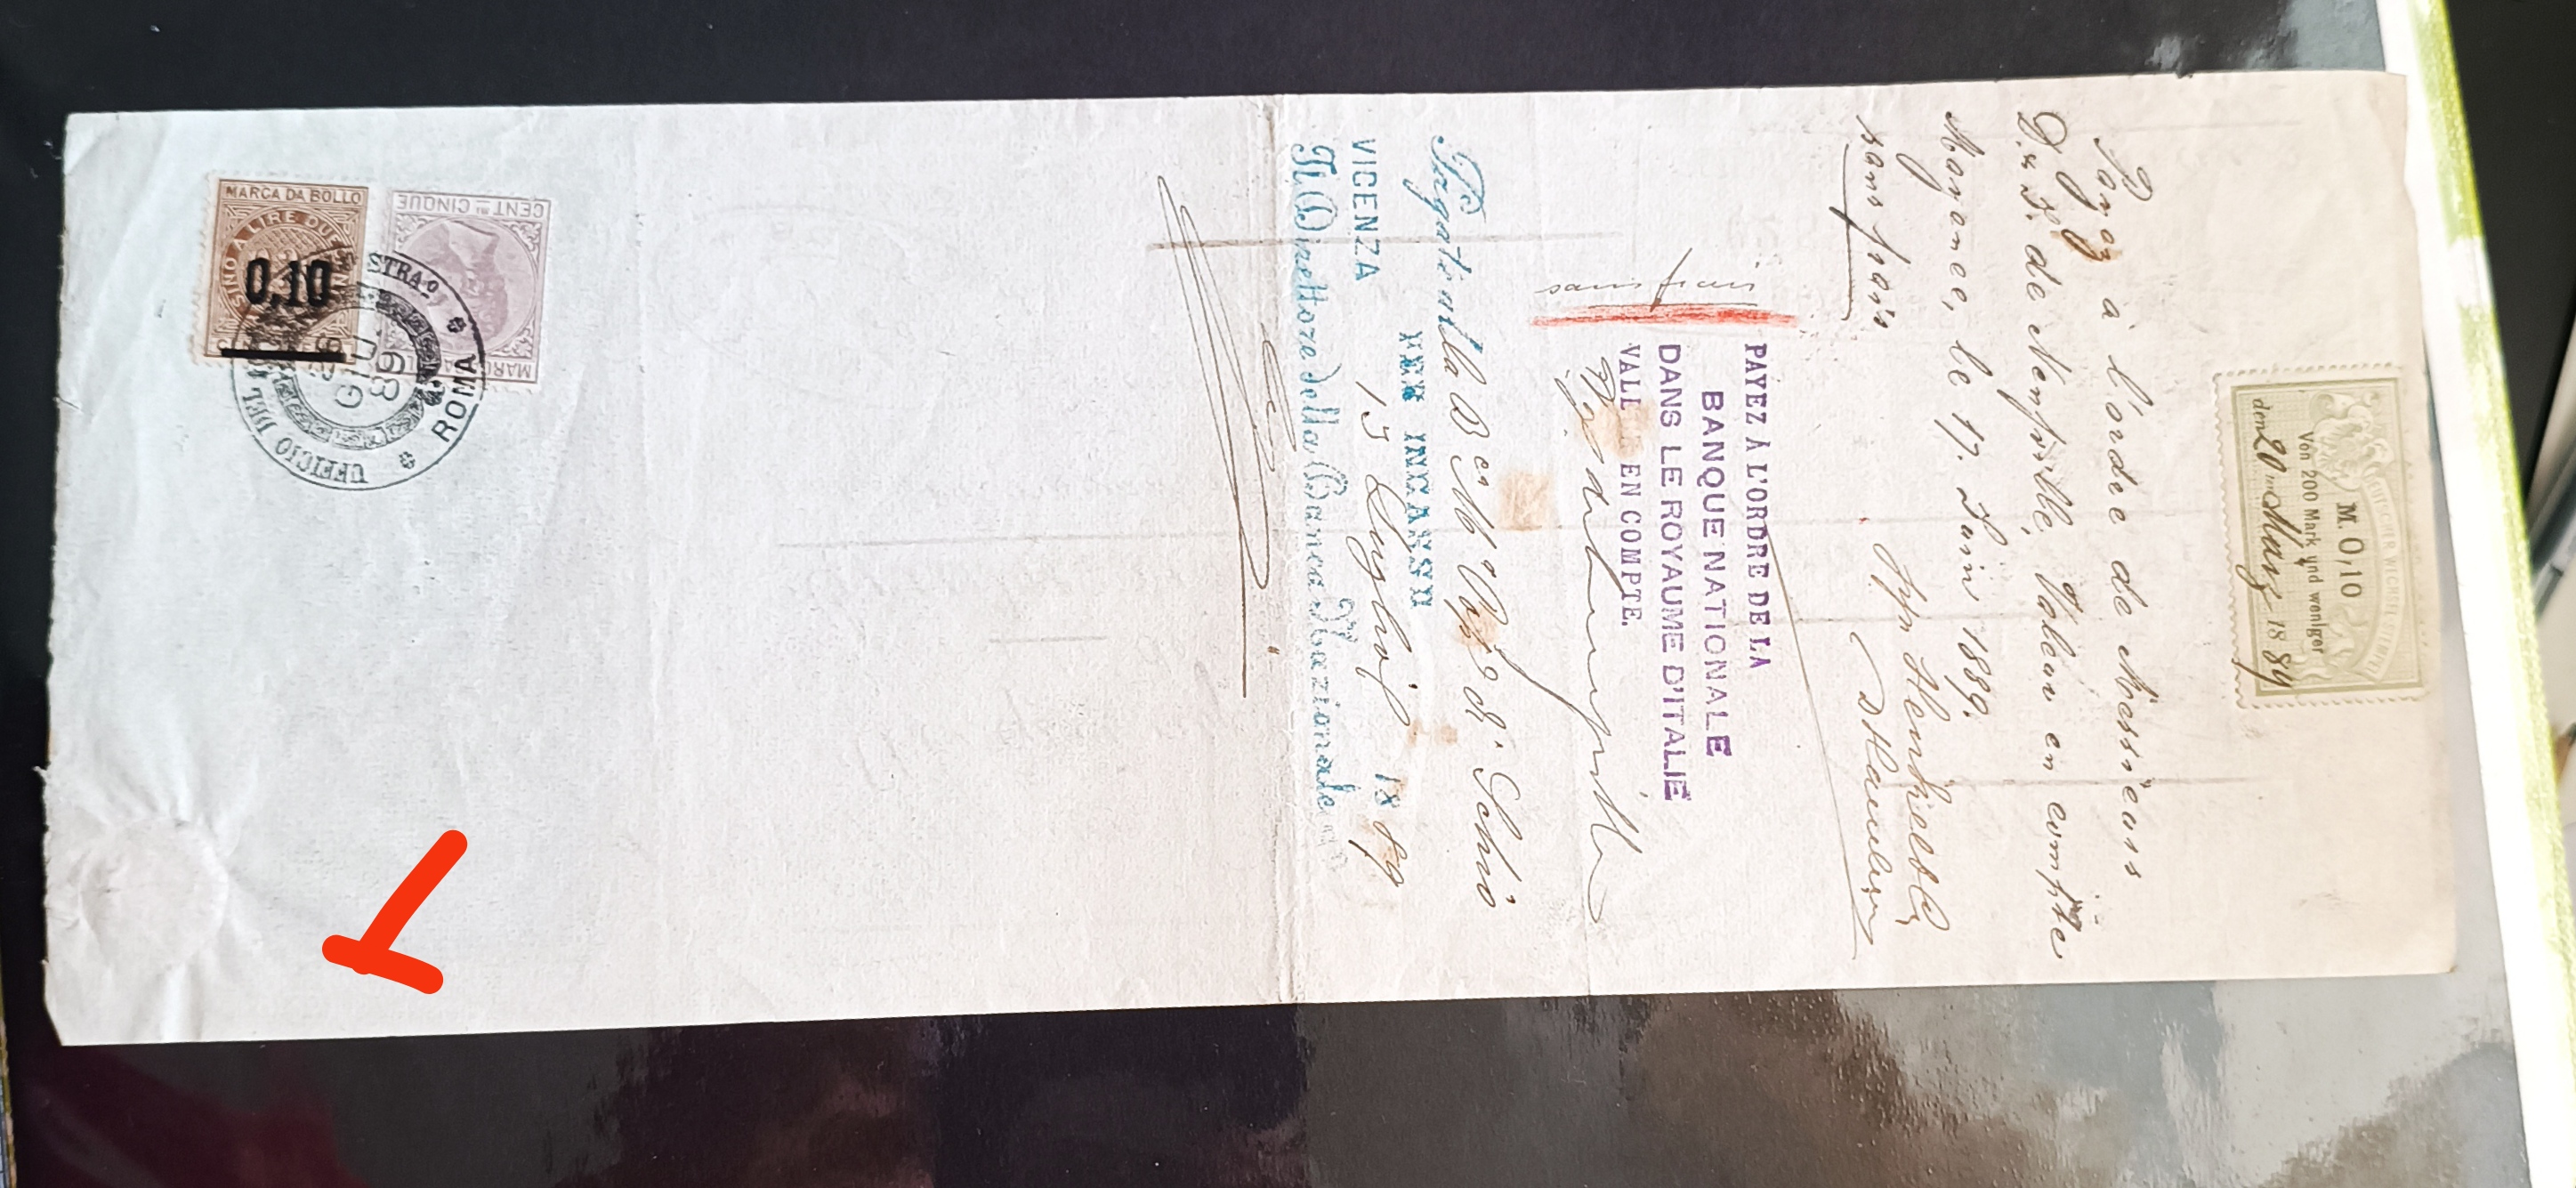 M. 0,10
Von 200 Mark und weniger
den 20 März 1889
Payez à l'ordre de Messieurs
D. & F. de Neufville, Valeur en compte
Mayence, le 17. Juin 1889.
sans frais
PAYEZ À L'ORDRE DE LA
BANQUE NATIONALE
DANS LE ROYAUME D'ITALIE
EN COMPTE.
sans frais
Pagate alla di Schio
PER INCASSO
VICENZA 13 Luglio 1889
Il Direttore della Banca Nazionale
MARCA DA BOLLO
0,10
CENT.MI CINQUE
UFFICIO DEL
ROMA
GIU
89